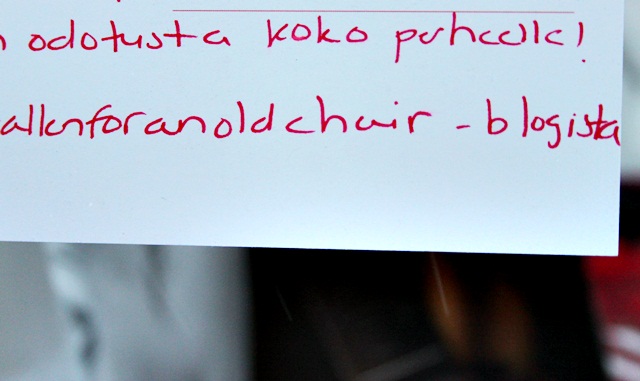 odotusta koko perheelle!
allenforanoldchair - blogista